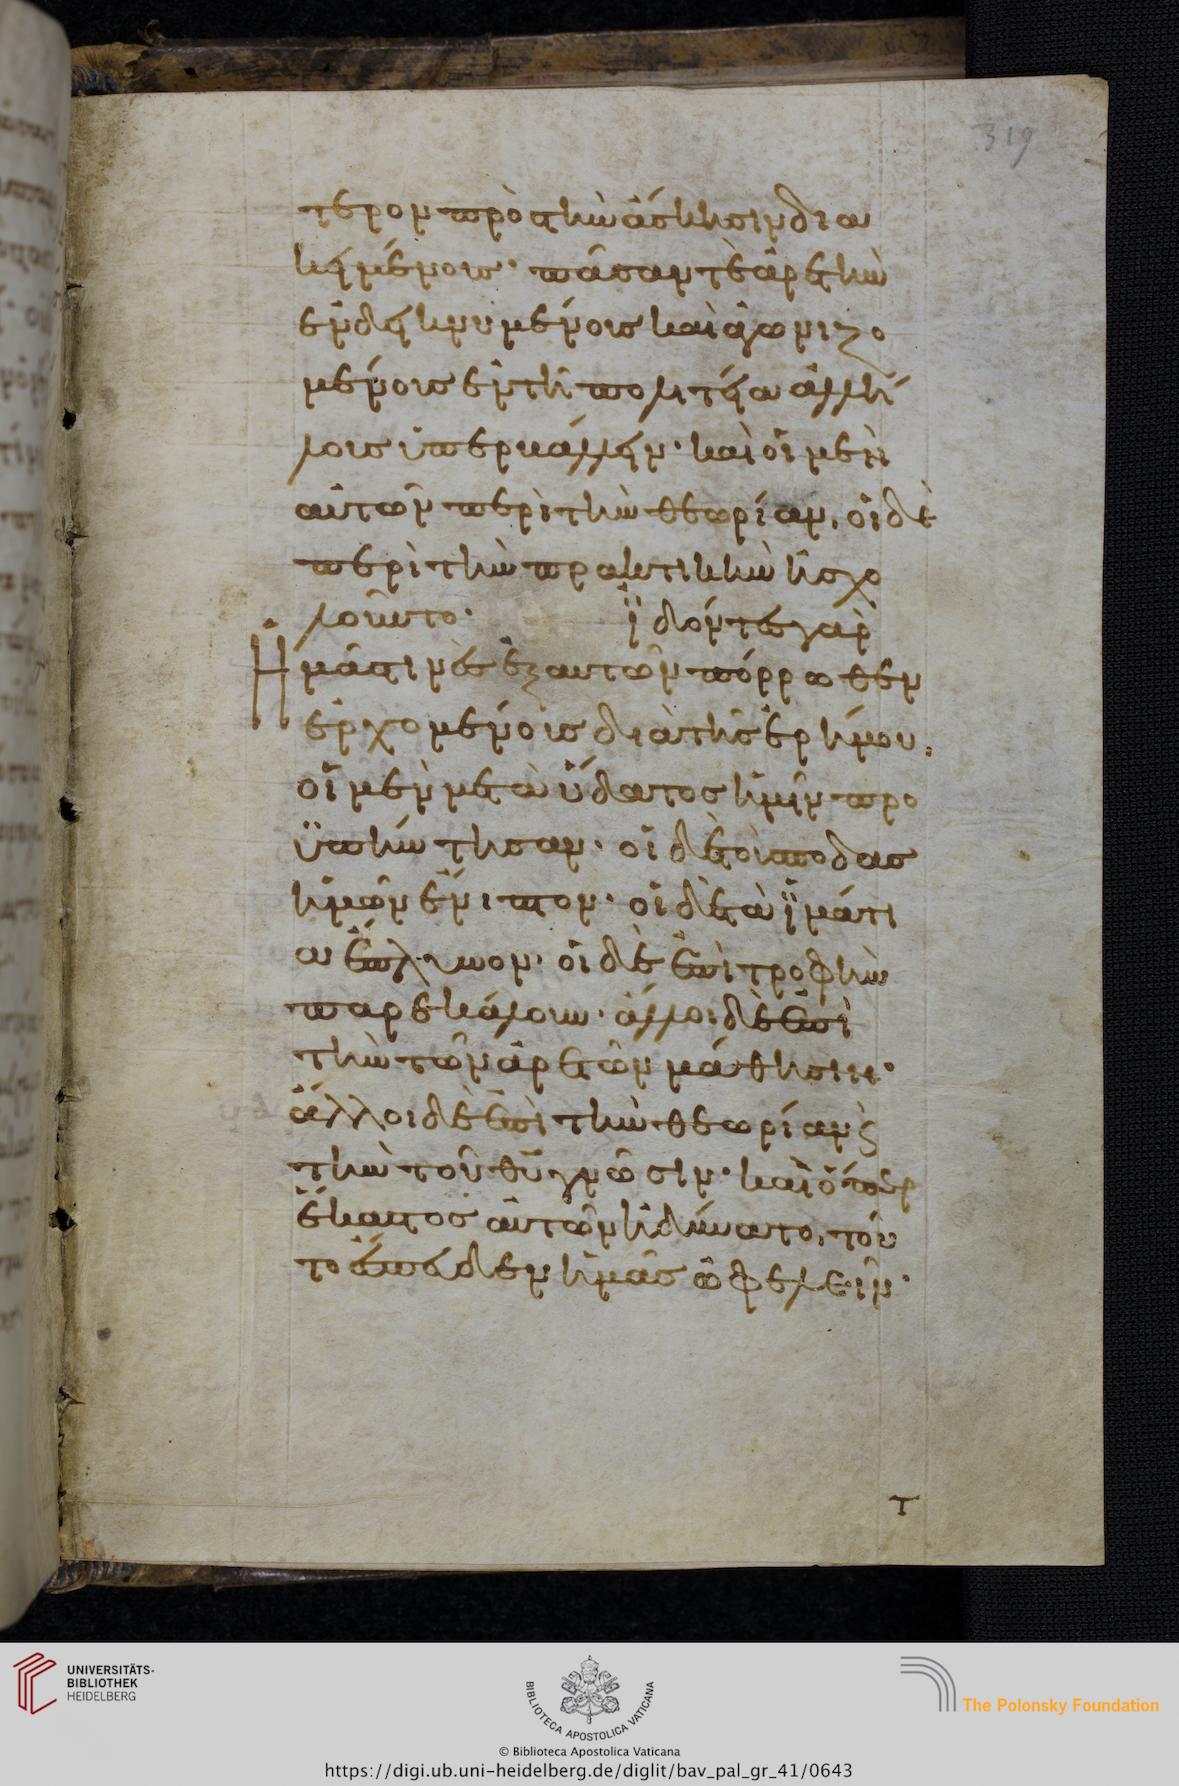 319
τερον πρὸς τὴν ἄσκησιν δια
κειμένοις· πᾶσαν τὲ ἀρετὴν
ενδεικνυμένοις καὶ ἀγωνιζο
μένοις ἐν τῆ πολιτεία ἀλλή
λοις ὑπερκάλλειν· καὶ οἱ μὲν
αὐτῶν περὶ τὴν θεωρίαν, οἱ δὲ
περὶ τὴν πρακτικὴν ἠσχο
λοῦντο· ϊδόντες γὰρ
Ημᾶς τινὲς ἐξ αυτῶν πόρρωθεν
ἐρχομένοις διὰ τῆς ἐρήμου,
οἱ μὲν μετὰ ὕδατος ἡμῖν προ
ϋπήντησαν· οἱ δὲ τοὺς ποδας
ἡμῶν ἔνιπτον· οἱ δὲ τὰ ϊμάτι
α ἔπλυνον· οἱ δὲ ἐπὶ τροφὴν
παρεκάλουν· ἄλλοι δὲ ἐπὶ
τὴν τῶν ἀρετῶν μάθησιν·
ἄλλοι δὲ ἐπὶ τὴν θεωρίαν ϗ
τὴν τοῦ θῡ γνῶσιν· καὶ ὅπερ
ἕκαστος αὐτῶν ἠδύνατο, τοῦ
το ἔσπευδεν ἡμᾶς ὠφελεῖν·
τ
UNIVERSITÄTS-
BIBLIOTHEK
HEIDELBERG
BIBLIOTECA APOSTOLICA VATICANA
© Biblioteca Apostolica Vaticana
The Polonsky Foundation
https://digi.ub.uni-heidelberg.de/diglit/bav_pal_gr_41/0643